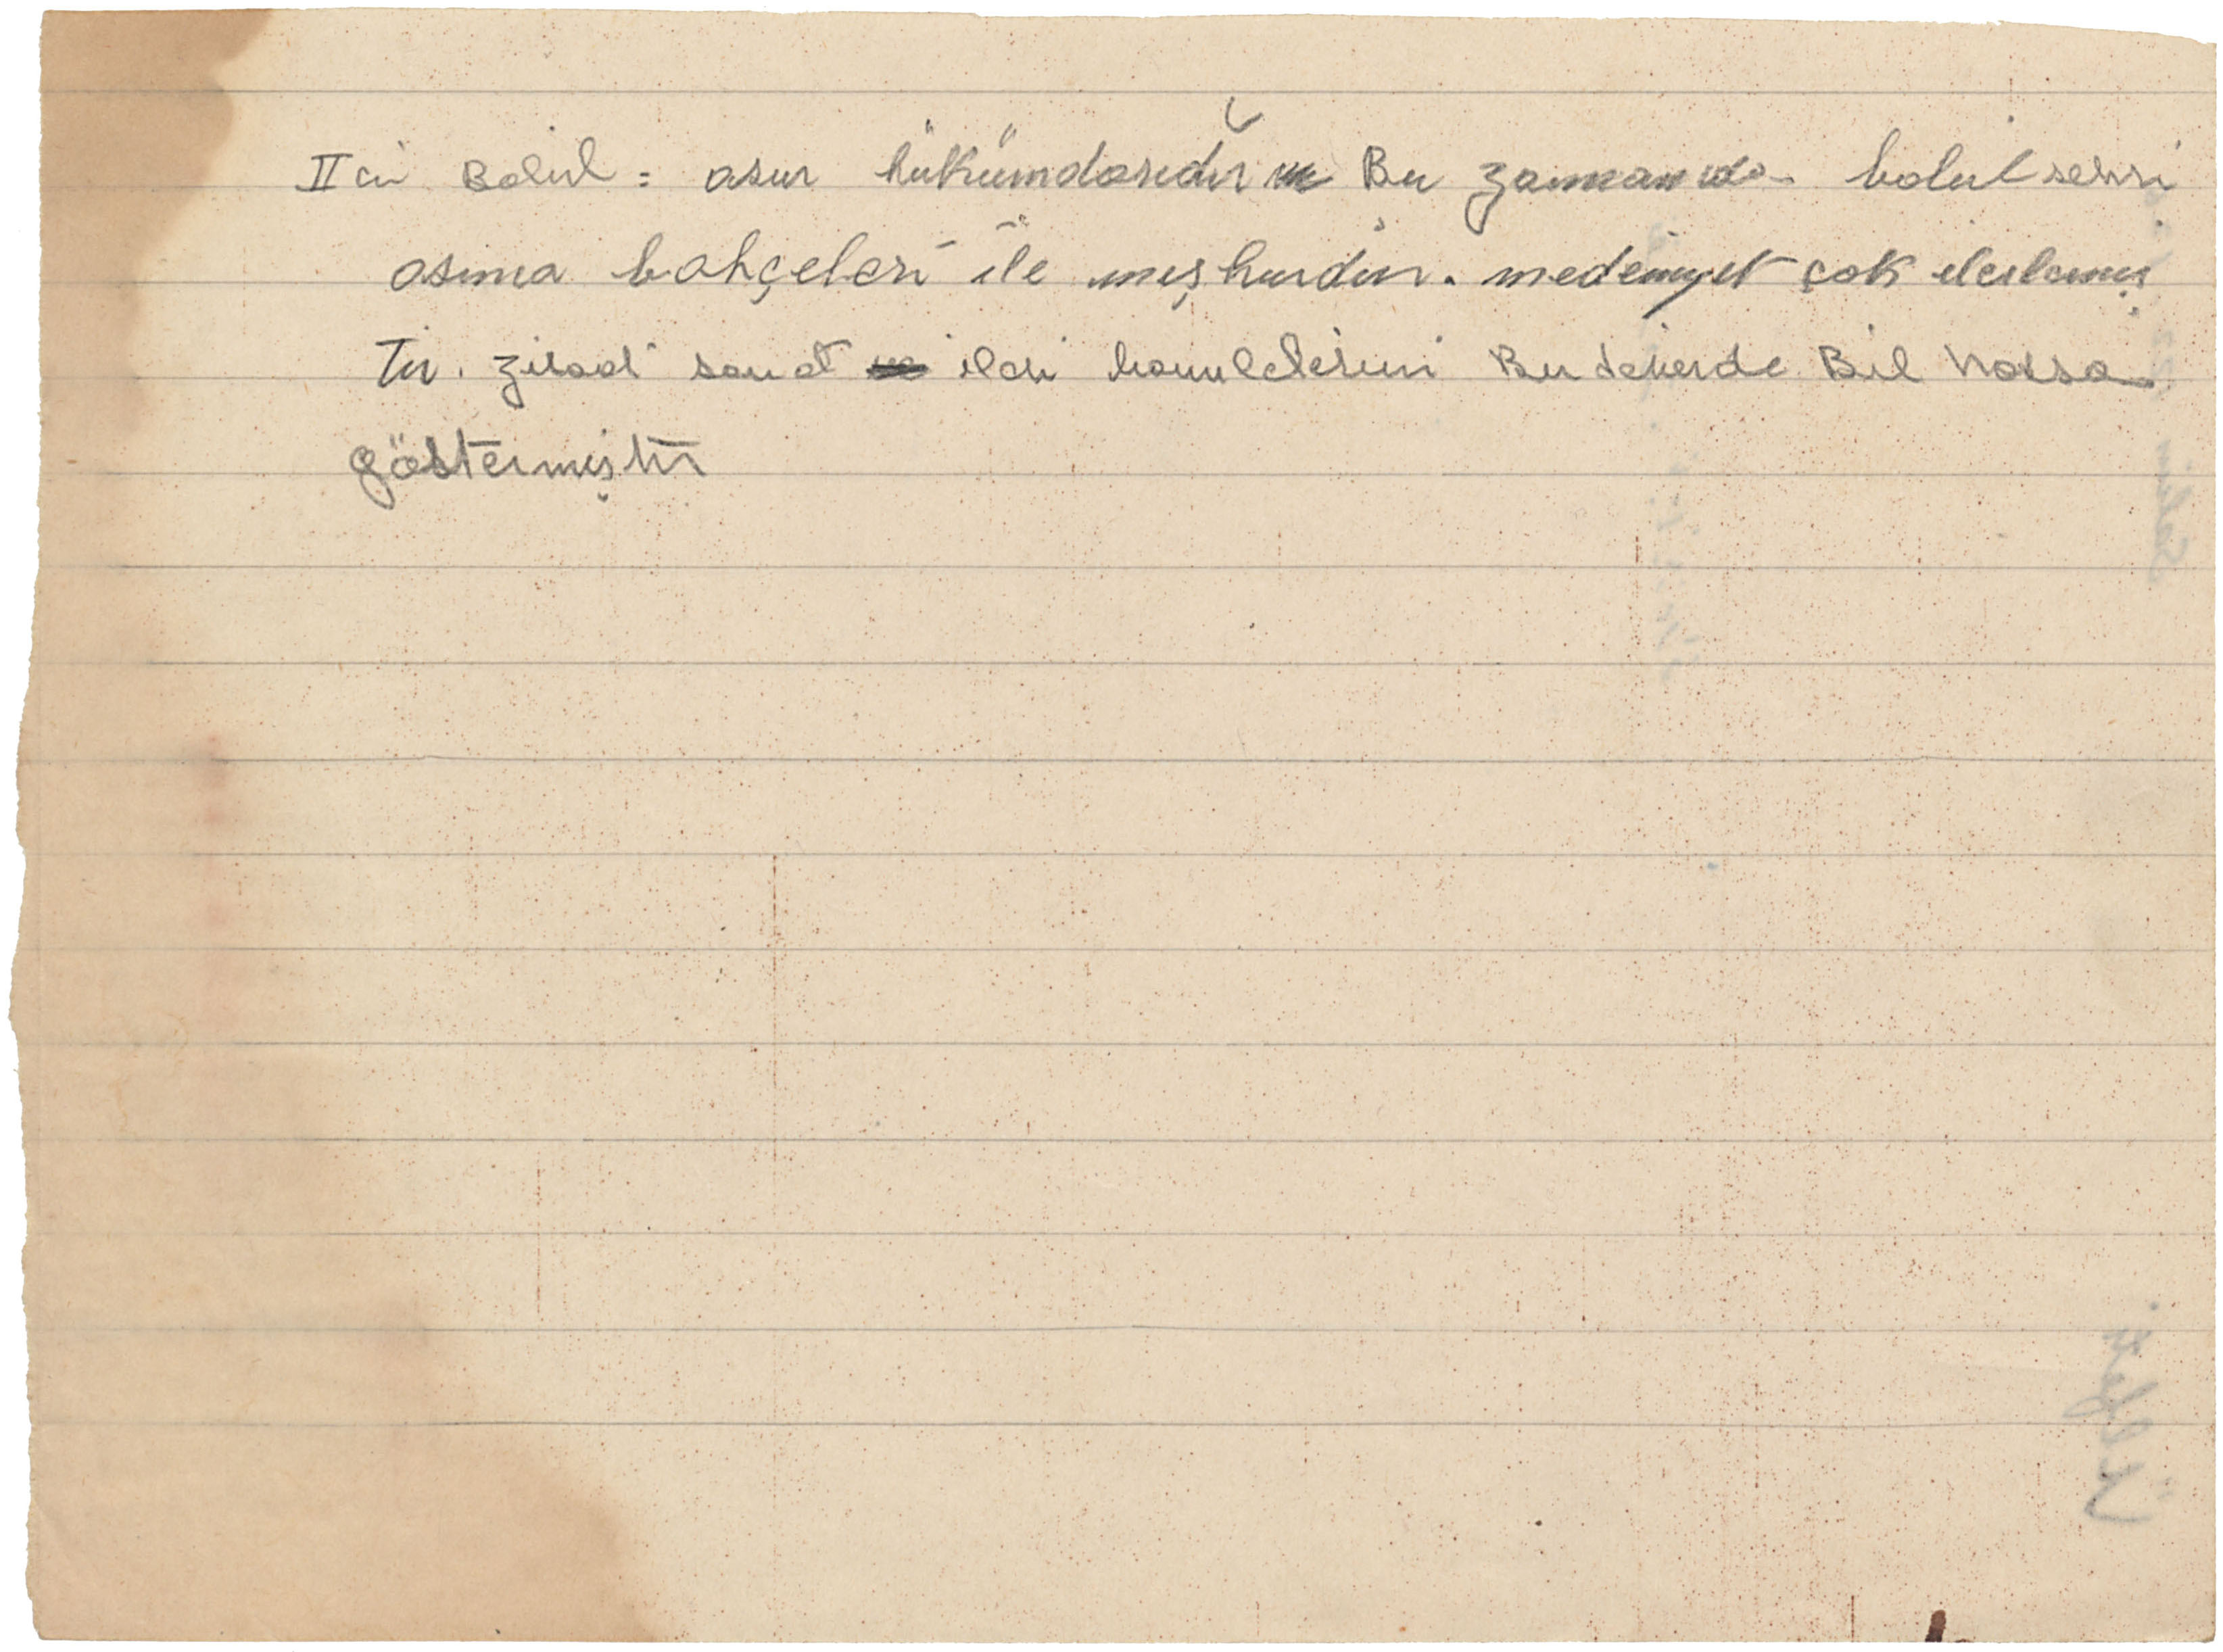 II ci Babil = asur hükümdarıdır Bu zamanda babil sehri
asma bahçeleri ile meşhurdur. medeniyet çok ilerlemiş
tir. ziraat sanat ileri hamlelerini Bu devirde Bil hassa
göstermiştir